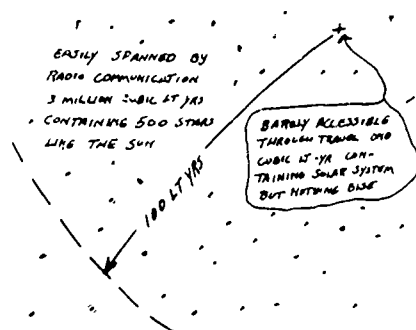 EASILY SPANNED BY
RADIO COMMUNICATION
3 MILLION CUBIC LT YRS
CONTAINING 500 STARS
LIKE THE SUN
100 LT YRS
BARELY ACCESSIBLE
THROUGH TRAVEL ONE
CUBIC LT-YR CON-
TAINING SOLAR SYSTEM
BUT NOTHING ELSE